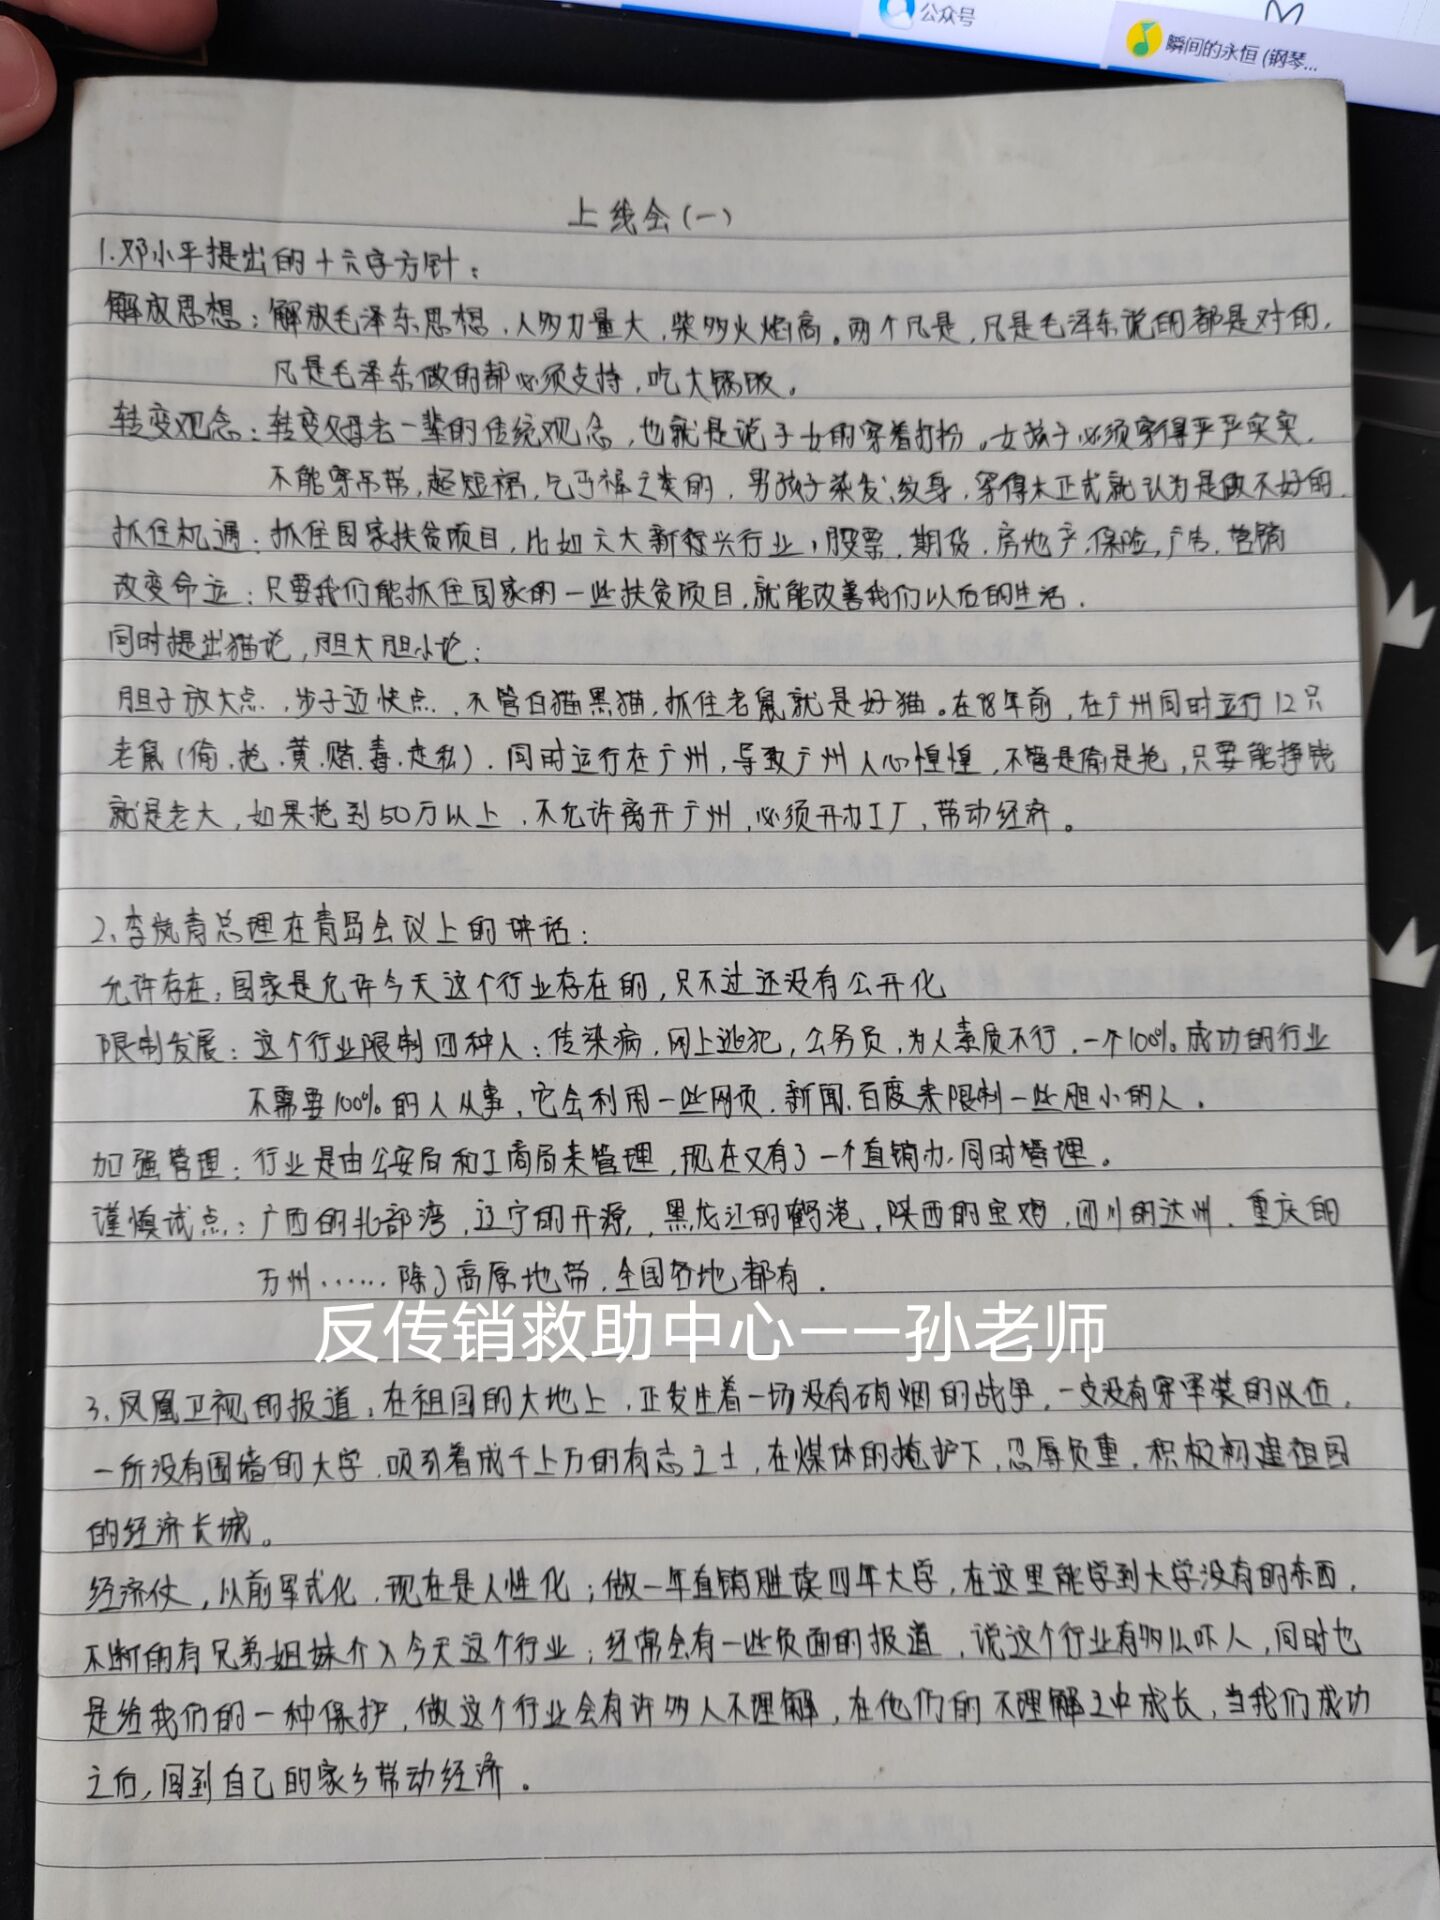 公众号
瞬间的永恒 (钢琴...
上线会(一)
1.邓小平提出的十六字方针：
解放思想：解放毛泽东思想，人多力量大，柴多火焰高。两个凡是，凡是毛泽东说的都是对的，
凡是毛泽东做的都必须支持，吃大锅饭。
转变观念：转变父母老一辈的传统观念，也就是说子女的穿着打扮。女孩子必须穿得严严实实，
不能穿吊带，超短裙，乞丐裤之类的，男孩子染发、纹身，穿得太正式就认为是做不好的.
抓住机遇：抓住国家扶贫项目，比如六大新兴行业，股票，期货，房地产，保险，广告，营销
改变命运：只要我们能抓住国家的一些扶贫项目，就能改善我们以后的生活.
同时提出猫论，胆大胆小论：
胆子放大点，步子迈快点，不管白猫黑猫，抓住老鼠就是好猫。在98年前，在广州同时运行12只
老鼠(偷.抢.黄.赌.毒.走私)，同时运行在广州，导致广州人心惶惶，不管是偷是抢，只要能挣钱
就是老大，如果抢到50万以上，不允许离开广州，必须开办工厂，带动经济。
2、李岚青总理在青岛会议上的讲话：
允许存在：国家是允许今天这个行业存在的，只不过还没有公开化
限制发展：这个行业限制四种人：传染病，网上逃犯，公务员，为人素质不行，一个100%成功的行业
不需要100%的人从事，它会利用一些网页.新闻.百度来限制一些胆小的人.
加强管理：行业是由公安局和工商局来管理，现在又有了一个直销办，同时管理。
谨慎试点：广西的北部湾，辽宁的开源，黑龙江的鹤港，陕西的宝鸡，四川的达州，重庆的
万州……除了高原地带，全国各地都有.
反传销救助中心——孙老师
3、凤凰卫视的报道：在祖国的大地上，正发生着一场没有硝烟的战争，一支没有穿军装的队伍，
一所没有围墙的大学，吸引着成千上万的有志之士，在媒体的掩护下，忍辱负重，积极构建祖国
的经济长城。
经济仗，以前军式化，现在是人性化；做一年直销胜读四年大学，在这里能学到大学没有的东西，
不断的有兄弟姐妹介入今天这个行业；经常会有一些负面的报道，说这个行业有多么吓人，同时也
是给我们的一种保护，做这个行业会有许多人不理解，在他们的不理解之中成长，当我们成功
之后，回到自己的家乡带动经济。